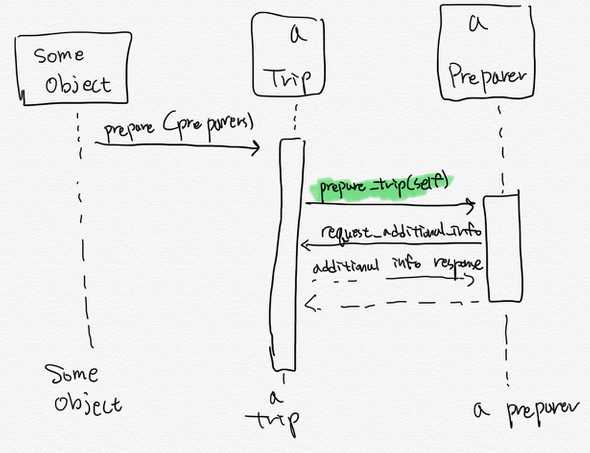 Some
Object
a
Trip
a
Preparer
prepare (preparers)
prepare_trip(self)
request_additional_info
additional info response
Some
Object
a
trip
a preparer